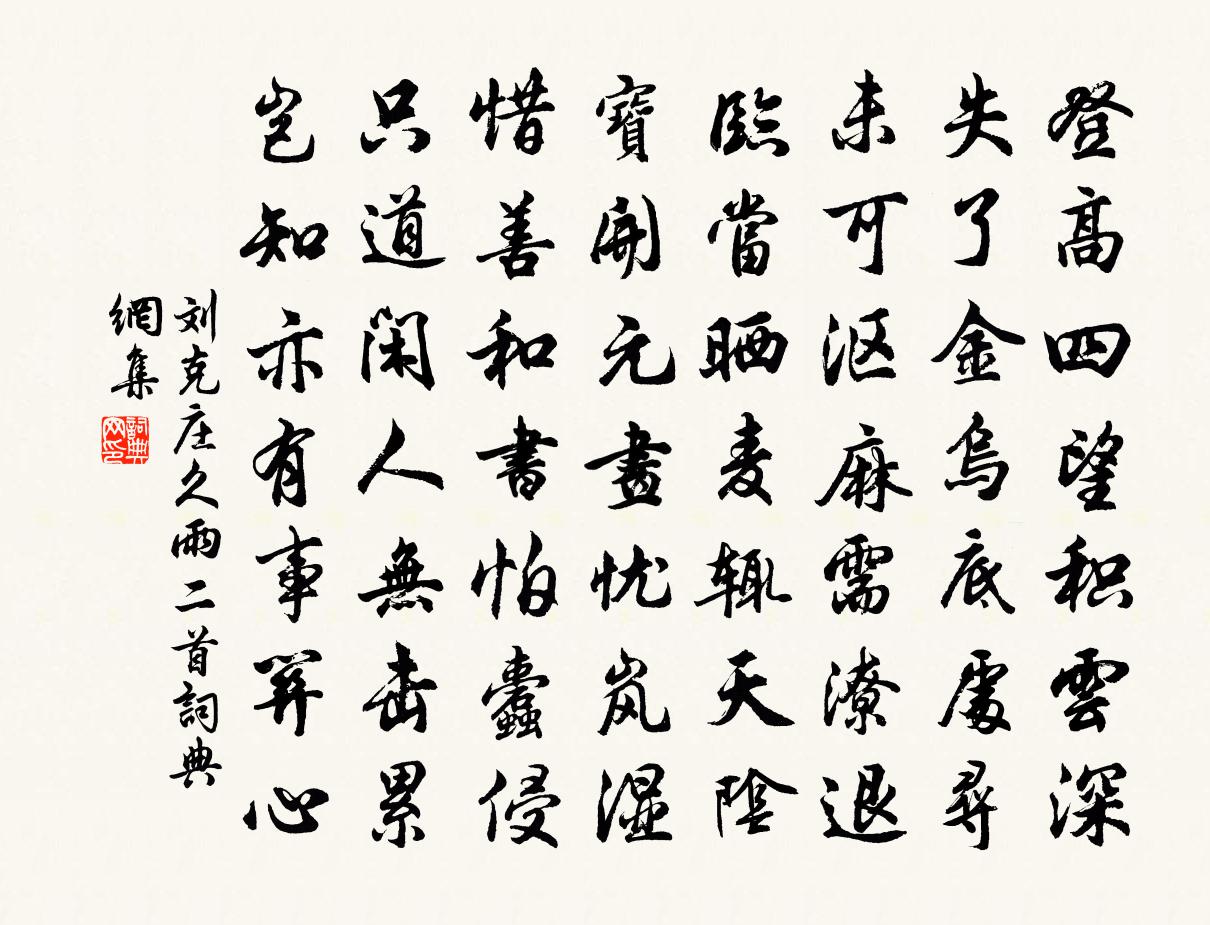 登高四望积雲深
失了金烏底處尋
未可沤麻需潦退
臨當晒麦辄天陰
寶開元畫忧岚湿
惜善和書怕蠹侵
只道閑人無击累
岂知亦有事关心
刘克庄久雨二首詞典
網集
詞典
网印